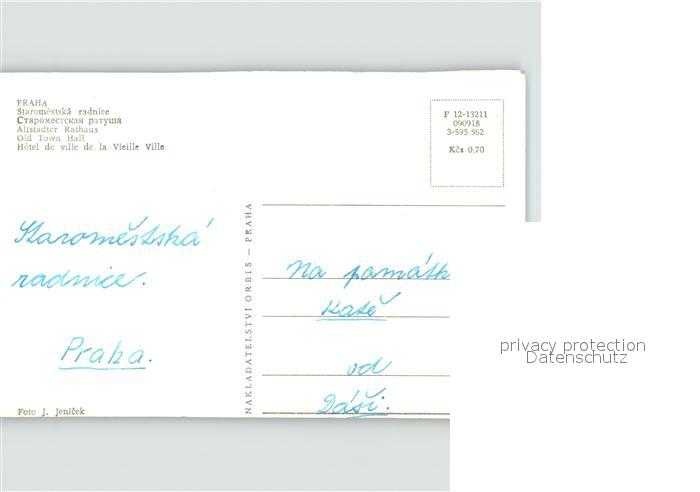 PRAHA
Staroměstská radnice
Староместская ратуша
Altstädter Rathaus
Old Town Hall
Hôtel de ville de la Vieille Ville
F 12-13211
090918
3-595.562
Kčs 0,70
Staroměstská
radnice.
Praha.
Foto J. Jeníček
NAKLADATELSTVÍ ORBIS – PRAHA
Na památk
Katě
od
Dáši.
privacy protection
Datenschutz